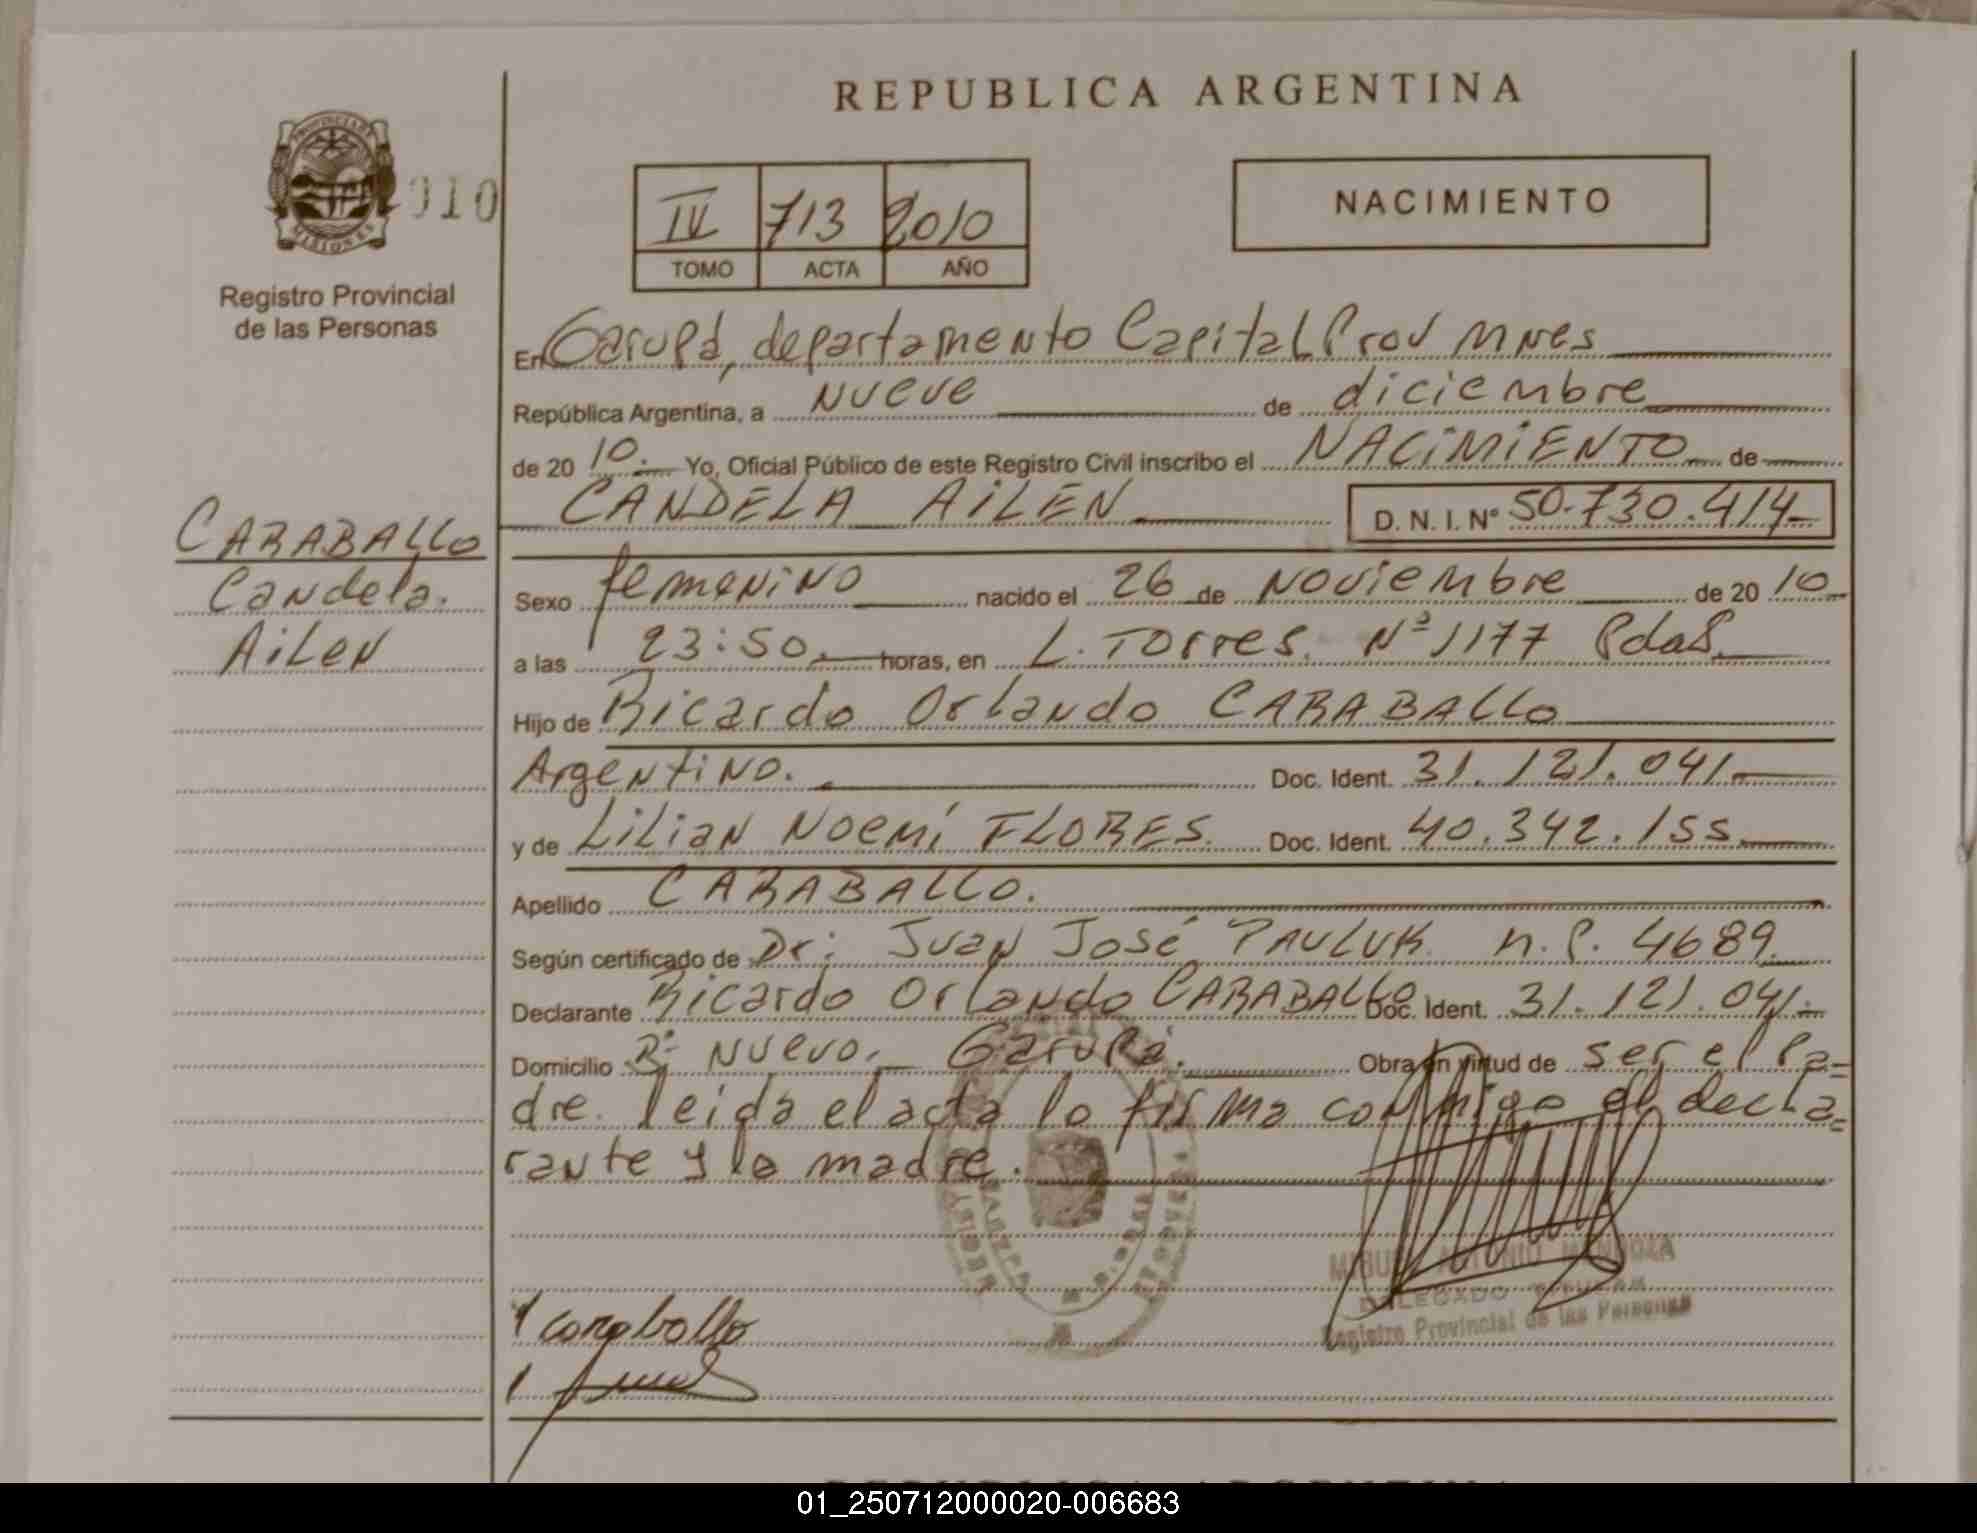 REPUBLICA ARGENTINA
PROVINCIA DE
MISIONES
010
Registro Provincial
de las Personas
IV 713 2010
TOMO ACTA AÑO
NACIMIENTO
En Garupá, departamento Capital Prov Mnes
República Argentina, a nueve de diciembre
de 20 10. Yo, Oficial Público de este Registro Civil inscribo el NACIMIENTO de
CANDELA AILEN D. N. I. N° 50.730.414
CARABALLO
Candela.
Ailen
Sexo femenino nacido el 26 de Noviembre de 20 10
a las 23:50 horas, en L. Torres. Nº 1177 Pdas.
Hijo de Ricardo Orlando CARABALLO
Argentino. Doc. Ident. 31.121.041
y de Lilian Noemí FLORES. Doc. Ident. 40.342.155
Apellido CARABALLO.
Según certificado de Dr: Juan José PAULUK n.P. 4689
Declarante Ricardo Orlando CARABALLO Doc. Ident. 31.121.041
Domicilio Bº Nuevo. Garupá. Obra en virtud de ser el Pa=
dre. leida el acta lo firma conmigo el decla=
rante y la madre.
MIGUEL ANTONIO MENDOZA
DELEGADO TITULAR
Registro Provincial de las Personas
caraballo
01_250712000020-006683